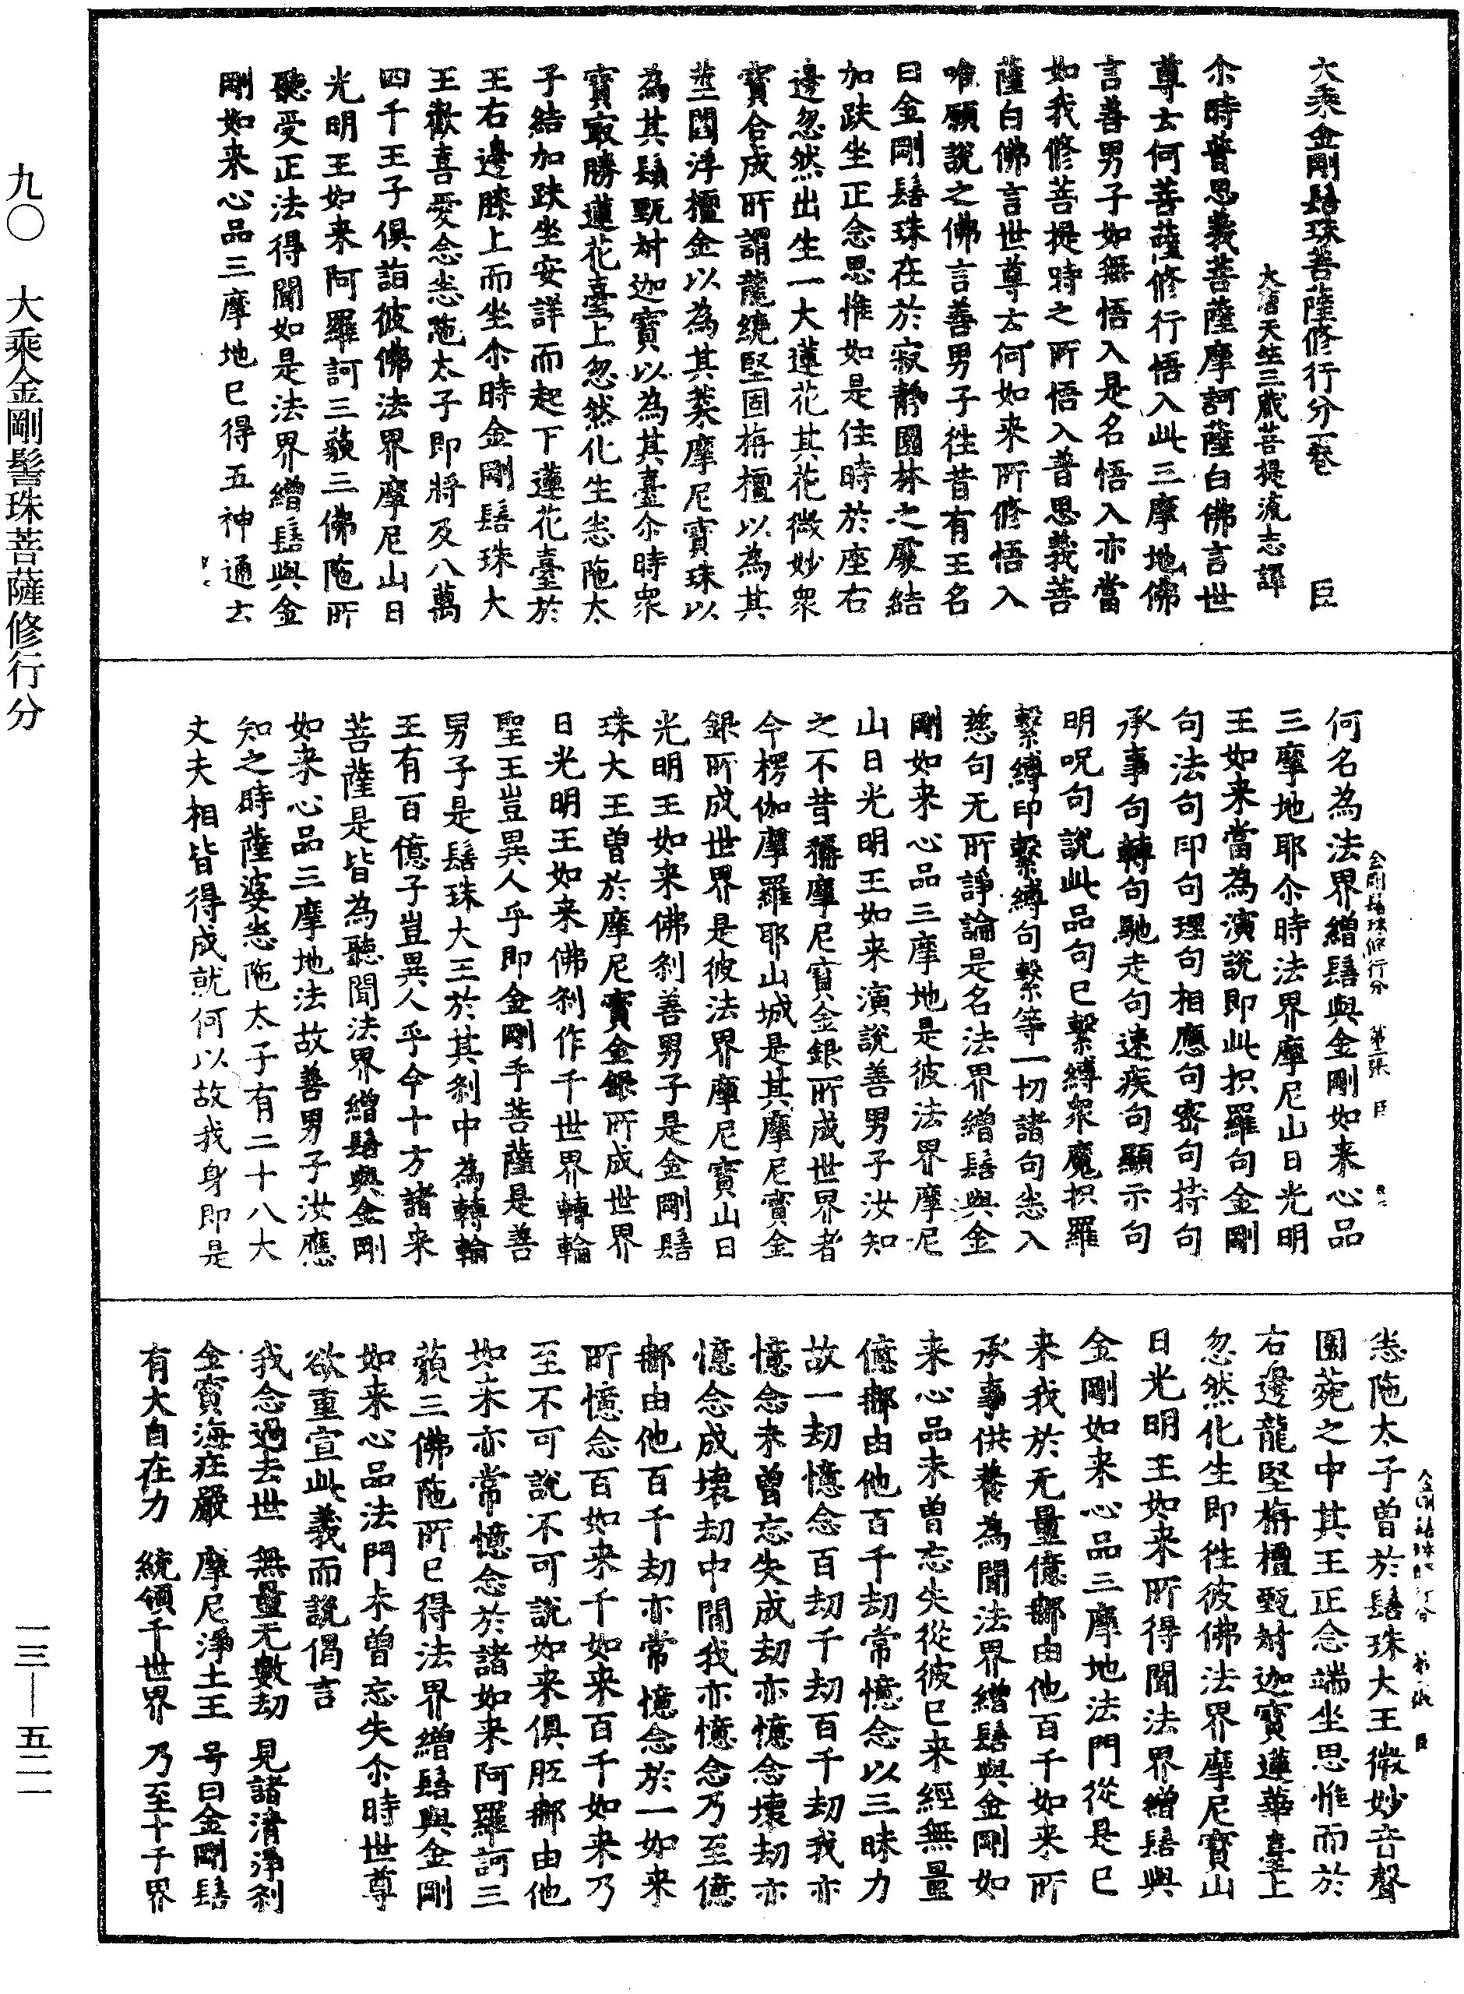 大乘金剛髻珠菩薩修行分一卷　臣
大唐天竺三藏菩提流志譯
尒時普思義菩薩摩訶薩白佛言世
尊云何菩薩修行悟入此三摩地佛
言善男子如無悟入是名悟入亦當
如我修菩提時之所悟入普思義菩
薩白佛言世尊云何如来所修悟入
唯願說之佛言善男子徃昔有王名
曰金剛髻珠在於寂静園林之處結
加趺坐正念思惟如是住時於座右
邊忽然出生一大蓮花其花微妙衆
寶合成所謂龍繞堅固栴檀以為其
莖閻浮檀金以為其葉摩尼寶珠以
為其鬚甄叔迦寶以為其臺尒時衆
寶㝡勝蓮花臺上忽然化生悉陁太
子結加趺坐安詳而起下蓮花臺於
王右邊膝上而坐尒時金剛髻珠大
王歡喜愛念悉陁太子即將及八萬
四千王子俱詣彼佛法界摩尼山日
光明王如来阿羅訶三藐三佛陁所
聽受正法得聞如是法界繒髻與金
剛如来心品三摩地已得五神通云
何名為法界繒髻與金剛如来心品
三摩地耶尒時法界摩尼山日光明
王如来當為演說即此抧羅句金剛
句法句印句理句相應句密句持句
承事句轉句馳走句速疾句顯示句
明呪句說此品句已繫縛衆魔抧羅
繫縛印繫縛句繫等一切諸句悉入
慈句无所諍論是名法界繒髻與金
剛如来心品三摩地是彼法界摩尼
山日光明王如来演說善男子汝知
之不昔稱摩尼寶金銀所成世界者
今楞伽摩羅耶山城是其摩尼寶金
銀所成世界是彼法界摩尼寶山日
光明王如来佛剎善男子是金剛髻
珠大王曾於摩尼寶金銀所成世界
日光明王如来佛剎作千世界轉輪
聖王豈異人乎即金剛手菩薩是善
男子是髻珠大王於其剎中為轉輪
王有百億子豈異人乎今十方諸来
菩薩是皆為聽聞法界繒髻與金剛
如来心品三摩地法故善男子汝應
知之時薩婆悉陁太子有二十八大
丈夫相皆得成就何以故我身即是
金剛髻珠修行分　第二張　臣
悉陁太子曾於髻珠大王微妙音聲
園苑之中其王正念端坐思惟而於
右邊龍堅栴檀甄叔迦寶蓮華臺上
忽然化生即徃彼佛法界摩尼寶山
日光明王如来所得聞法界繒髻與
金剛如来心品三摩地法門從是已
来我於无量億那由他百千如来所
承事供養為聞法界繒髻與金剛如
来心品未曾忘失從彼已来經無量
億那由他百千劫常憶念以三昧力
故一劫憶念百劫千劫百千劫我亦
憶念未曾忘失成劫亦憶念壞劫亦
憶念成壞劫中間我亦憶念乃至億
那由他百千劫亦常憶念於一如来
所憶念百如来千如来百千如来乃
至不可說不可說如来俱胝那由他
如来亦常憶念於諸如来阿羅訶三
藐三佛陁所已得法界繒髻與金剛
如来心品法門未曾忘失尒時世尊
欲重宣此義而說偈言
我念過去世　無量无數劫　見諸清淨剎
金寶海莊嚴　摩尼淨土王　号曰金剛髻
有大自在力　統領千世界　乃至十千界
九〇　大乘金剛髻珠菩薩修行分
一三—五二一